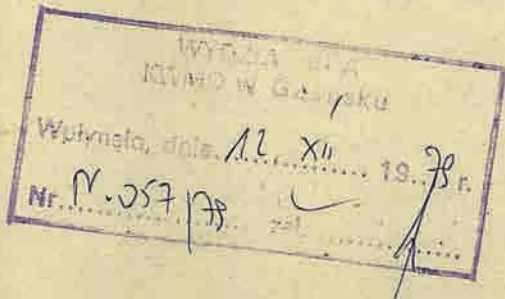 KWMO w Gdańsku
Wpłynęło, dnia 12 XII 1979 r.
Nr. N.057/79 zał.